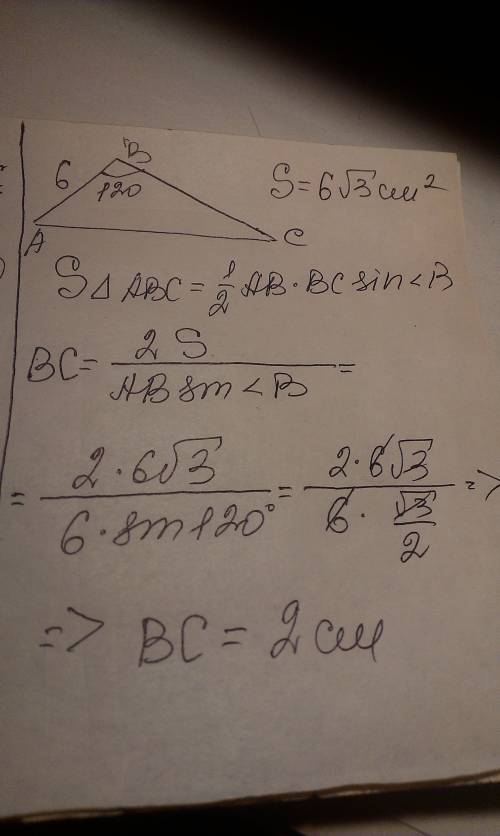 B
6 120 S = 6√3 см²
A C
S △ ABC = 1/2 AB · BC sin < B
BC = 2 S / AB sin < B =
= 2 · 6√3 / 6 · sin 120° = 2 · 6√3 / 6 · √3/2 =>
=> BC = 2 см